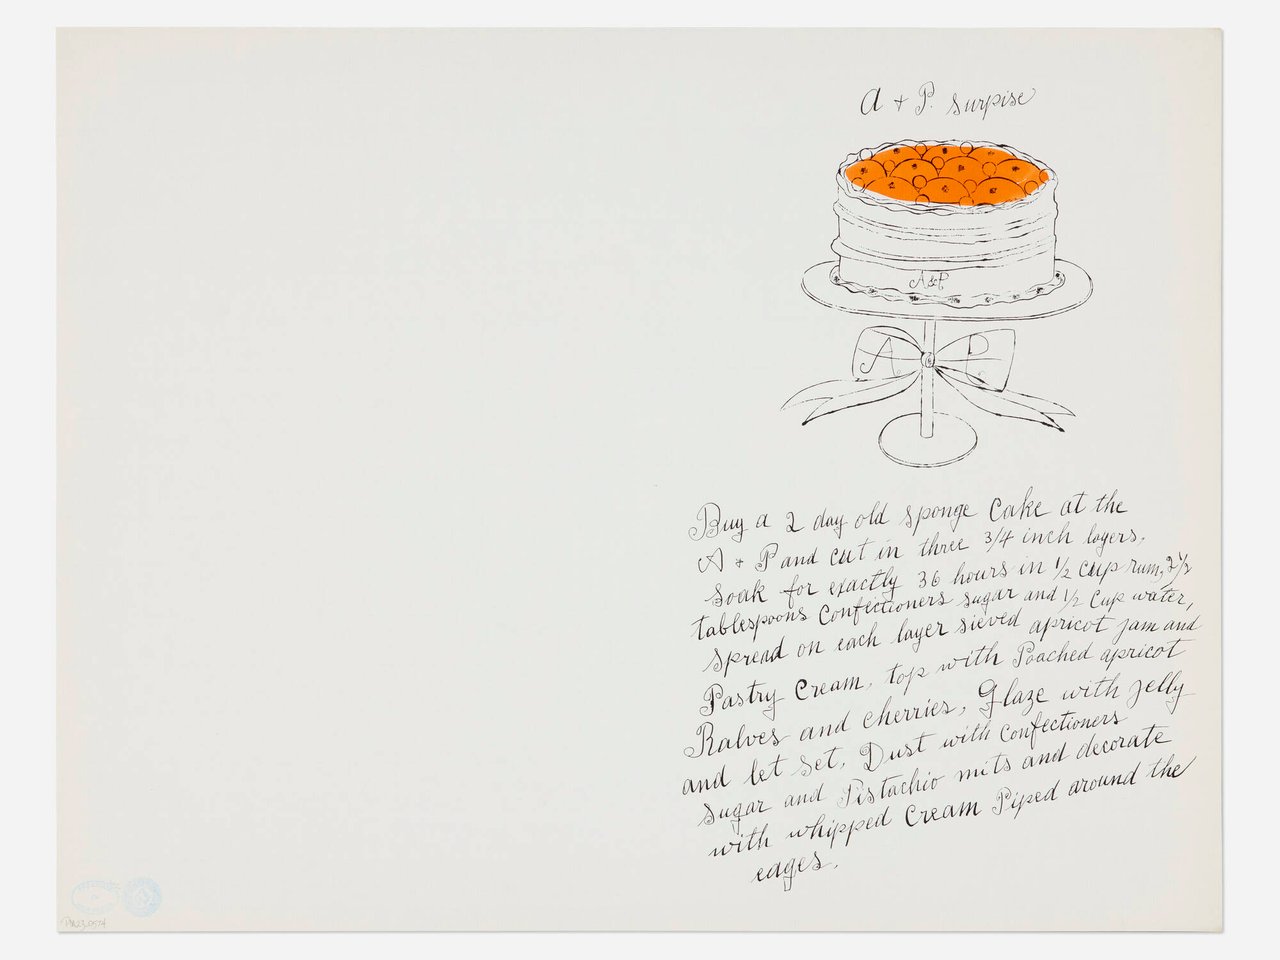 A + P. surpise
A&P
A P
Buy a 2 day old sponge Cake at the
A + P and cut in three 3/4 inch layers,
soak for exactly 36 hours in 1/2 cup rum, 2 1/2
tablespoons Confectioners sugar and 1/2 Cup water,
spread on each layer sieved apricot jam and
Pastry Cream, top with Poached apricot
Halves and cherries, Glaze with jelly
and let set. Dust with Confectioners
sugar and Pistachio nuts and decorate
with whipped Cream Piped around the
edges.